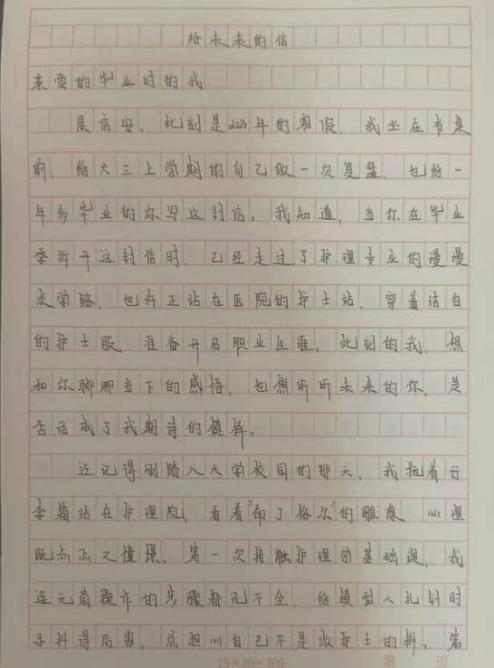 给未来的信
亲爱的毕业时的我
展信安。此刻是2025年的寒假，我坐在书桌
前，给大三上学期的自己做一次复盘，也给一
年多毕业的你写这封信。我知道，当你在毕业
季拆开这封信时，已经走过了护理专业的漫漫
求学路，也许正站在医院的护士站，穿着洁白
的护士服，准备开启职业生涯。此刻的我，想
和你聊聊当下的感悟，也想听听未来的你，是
否活成了我期待的模样。
还记得刚踏入大学校园的那天，我拖着行
李箱站在护理院，看着“南丁格尔”的雕像，心理
既忐忑又憧憬。第一次接触护理的基础课，我
连无菌操作的步骤都记不全，给模型人扎针时
手抖得厉害，总担心自己不是做护士的料。第
15×20=300
第 页